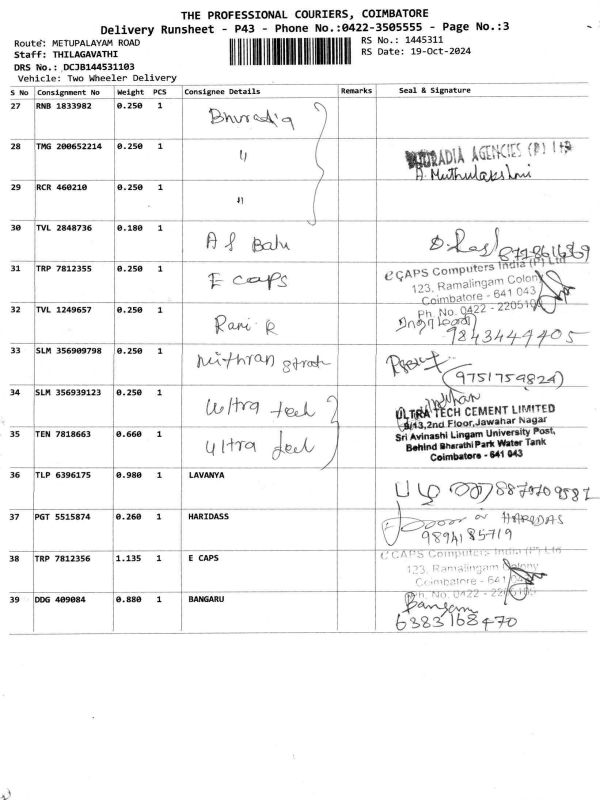 THE PROFESSIONAL COURIERS, COIMBATORE
Delivery Runsheet - P43 - Phone No.:0422-3505555 - Page No.:3
Route: METUPALAYAM ROAD
RS No.: 1445311
Staff: THILAGAVATHI
RS Date: 19-Oct-2024
DRS No.: DCJB144531103
Vehicle: Two Wheeler Delivery
S No Consignment No Weight PCS Consignee Details Remarks Seal & Signature
27 RNB 1833982 0.250 1
28 TMG 200652214 0.250 1 "
RADIA AGENCIES (P) Ltd
A. Muthulakshmi
29 RCR 460210 0.250 1 "
30 TVL 2848736 0.180 1 A S Balu
31 TRP 7812355 0.250 1 E caps
eCAPS Computers India (P) Ltd
123, Ramalingam Colony
Coimbatore - 641 043
Ph. No. 0422 - 220510
32 TVL 1249657 0.250 1 Rani R
9843444405
33 SLM 356909798 0.250 1 Mithran
(9751759824)
34 SLM 356939123 0.250 1 Ultra tech
ULTRA TECH CEMENT LIMITED
/13,2nd Floor,Jawahar Nagar
35 TEN 7818663 0.660 1 Ultra tech
Sri Avinashi Lingam University Post,
Behind Bharathi Park Water Tank
Coimbatore - 641 043
36 TLP 6396175 0.980 1 LAVANYA
37 PGT 5515874 0.260 1 HARIDASS
HARIDAS
9894185719
38 TRP 7812356 1.135 1 E CAPS
eCAPS Computers India (P) Ltd
123, Ramalingam Colony
Coimbatore - 641 043
Ph. No. 0422 - 220510
39 DDG 409084 0.880 1 BANGARU
6383168470